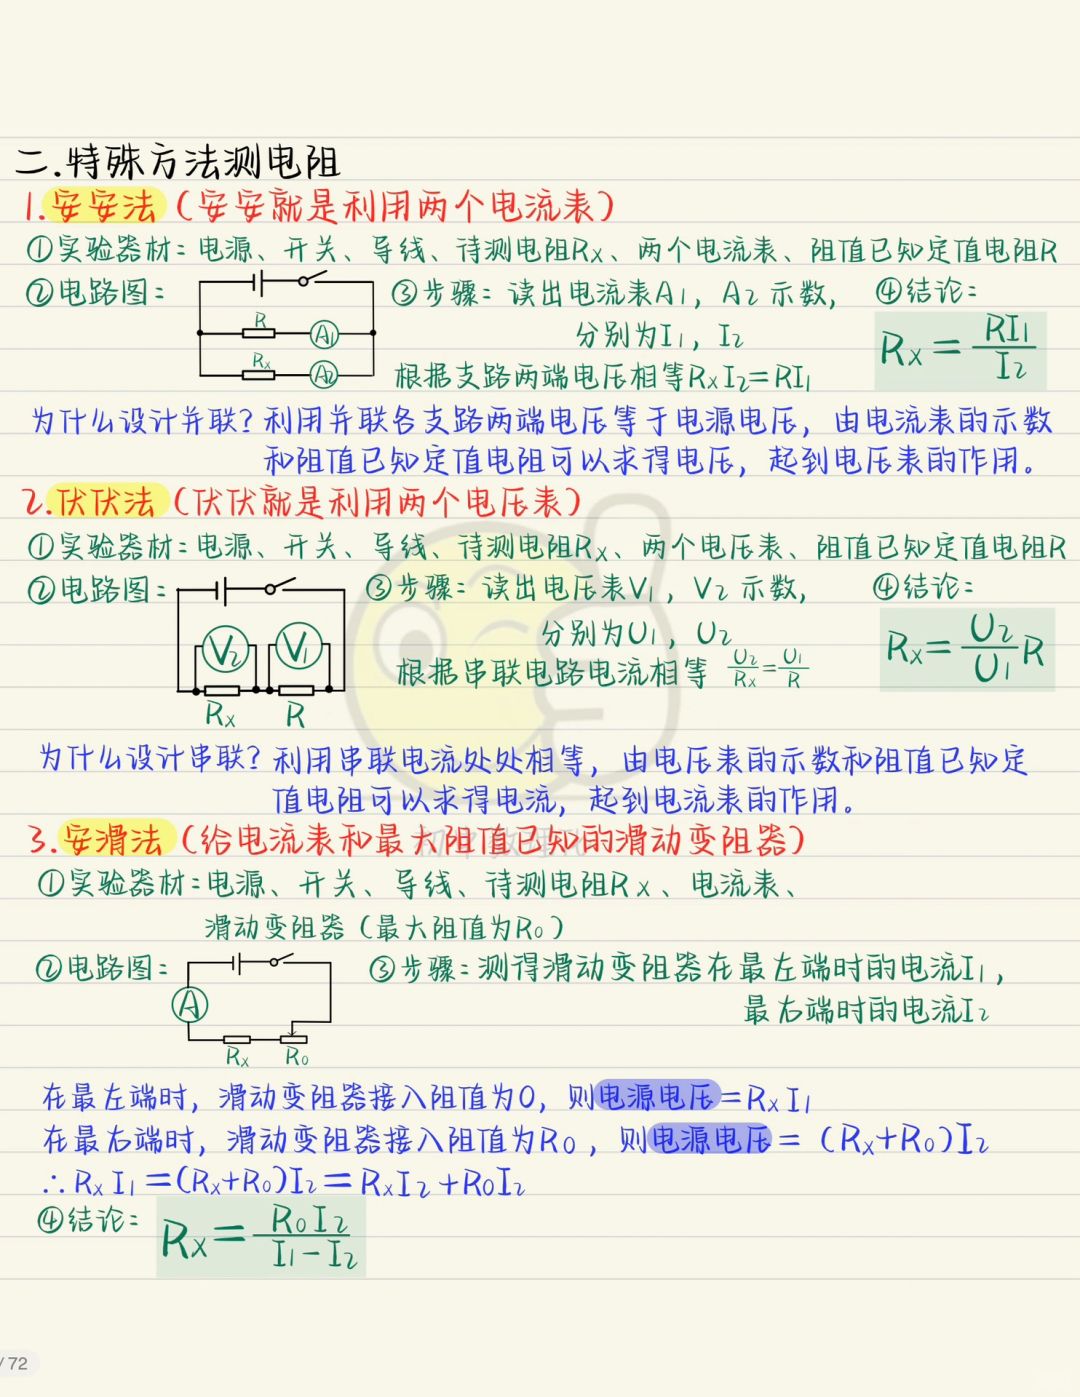 二.特殊方法测电阻
1.安安法（安安就是利用两个电流表）
①实验器材：电源、开关、导线、待测电阻Rx、两个电流表、阻值已知定值电阻R
②电路图：
R
A1
Rx
A2
③步骤：读出电流表A1，A2示数，
分别为I1，I2
根据支路两端电压相等RxI2=RI1
④结论：
Rx=RI1/I2
为什么设计并联？利用并联各支路两端电压等于电源电压，由电流表的示数
和阻值已知定值电阻可以求得电压，起到电压表的作用。
2.伏伏法（伏伏就是利用两个电压表）
①实验器材：电源、开关、导线、待测电阻Rx、两个电压表、阻值已知定值电阻R
②电路图：
V2
V1
Rx
R
③步骤：读出电压表V1，V2示数，
分别为U1，U2
根据串联电路电流相等 U2/Rx=U1/R
④结论：
Rx=U2/U1R
为什么设计串联？利用串联电流处处相等，由电压表的示数和阻值已知定
值电阻可以求得电流，起到电流表的作用。
3.安滑法（给电流表和最大阻值已知的滑动变阻器）
①实验器材：电源、开关、导线、待测电阻Rx、电流表、
滑动变阻器（最大阻值为R0）
②电路图：
A
Rx
R0
③步骤：测得滑动变阻器在最左端时的电流I1，
最右端时的电流I2
在最左端时，滑动变阻器接入阻值为0，则电源电压=RxI1
在最右端时，滑动变阻器接入阻值为R0，则电源电压=（Rx+R0)I2
∴RxI1=(Rx+R0)I2=RxI2+R0I2
④结论：
Rx=R0I2/I1-I2
/72